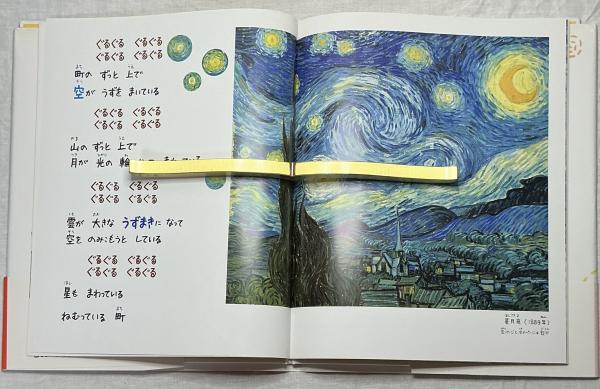 ぐるぐる ぐるぐる
ぐるぐる ぐるぐる
町の ずっと 上で
空が うずを まいている
ぐるぐる ぐるぐる
ぐるぐる ぐるぐる
山の ずっと 上で
月が 光の 輪
ぐるぐる ぐるぐる
ぐるぐる ぐるぐる
雲が 大きな うずまきに なって
空を のみこもうと している
ぐるぐる ぐるぐる
ぐるぐる ぐるぐる
星も まわっている
ねむっている 町
星月夜 (1889年)